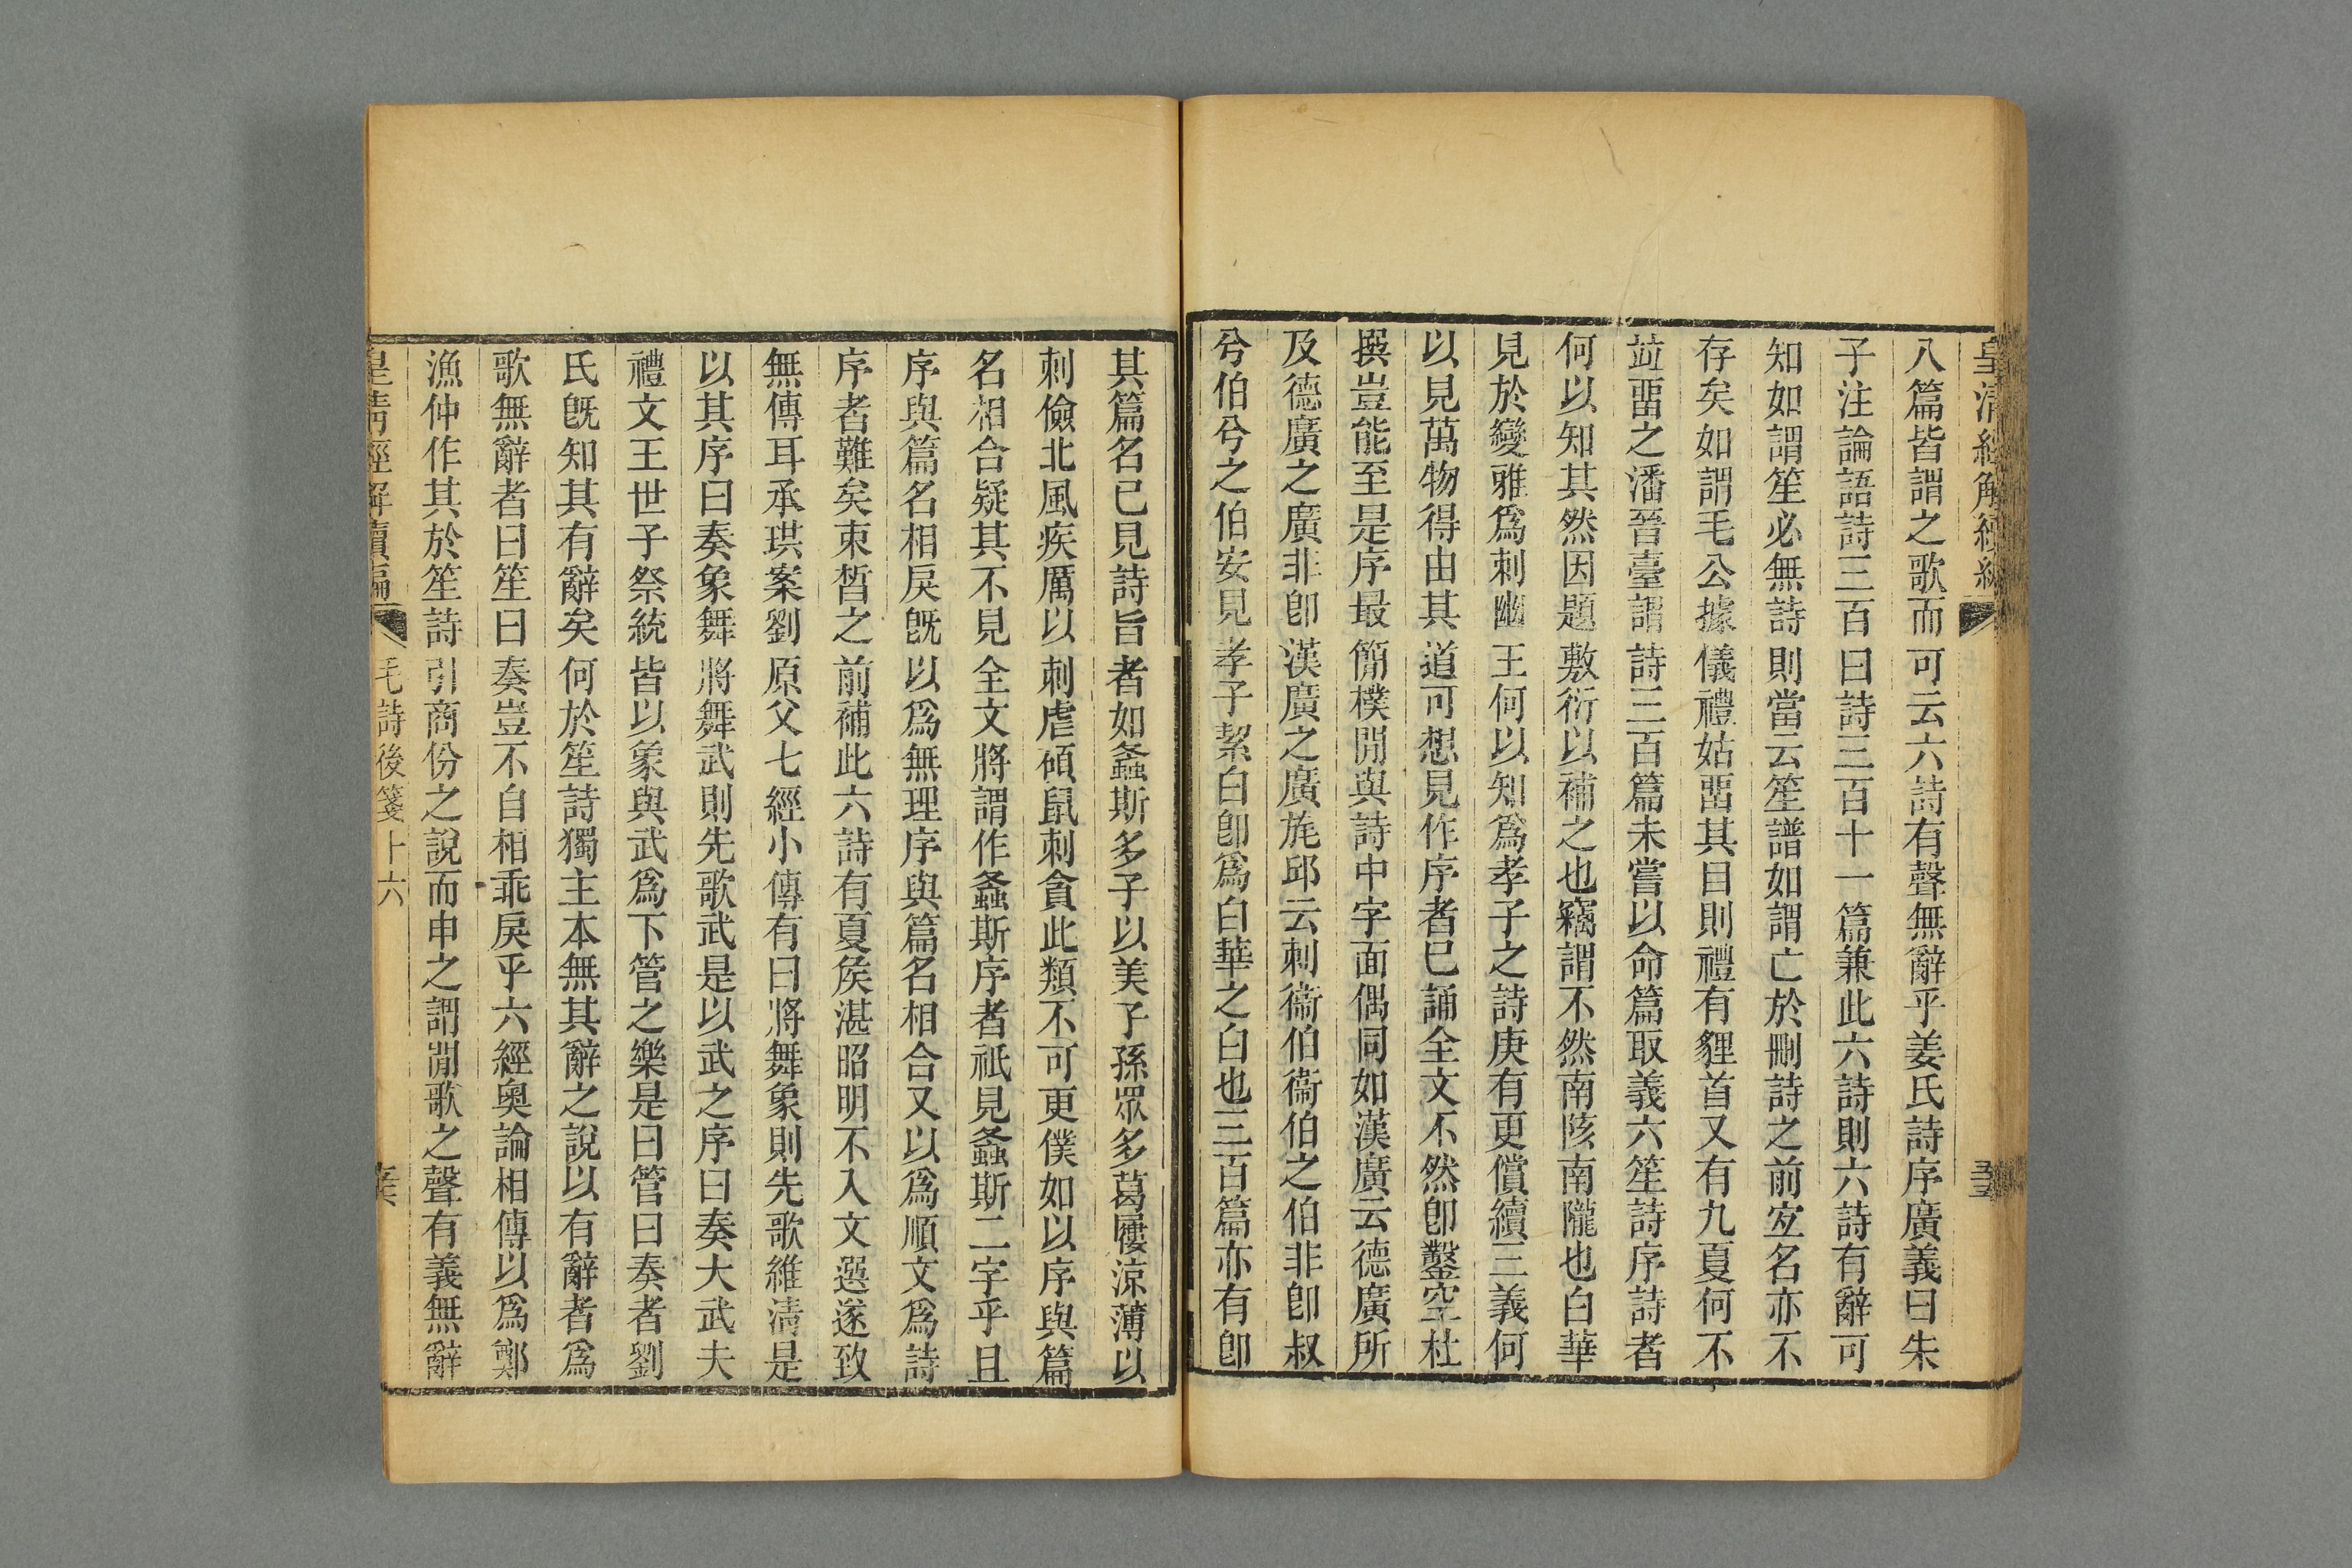 皇清經解續編
八篇皆謂之歌而可云六詩有聲無辭乎姜氏詩序廣義曰朱
子注論語詩三百曰詩三百十一篇兼此六詩則六詩有辭可
知如謂笙必無詩則當云笙譜如謂亡於刪詩之前㝎名亦不
存矣如謂毛公據儀禮姑畱其目則禮有貍首又有九夏何不
竝畱之潘晉臺謂詩三百篇未嘗以命篇取義六笙詩序詩者
何以知其然因題敷衍以補之也竊謂不然南陔南隴也白華
見於變雅爲刺幽王何以知爲孝子之詩庚有更償續三義何
以見萬物得由其道可想見作序者已誦全文不然卽鑿空杜
撰豈能至是序最簡樸閒與詩中字面偶同如漢廣云德廣所
及德廣之廣非卽漢廣之廣旄邱云刺衞伯衞伯之伯非卽叔
兮伯兮之伯安見孝子絜白卽爲白華之白也三百篇亦有卽
其篇名已見詩旨者如螽斯多子以美子孫眾多葛屨涼薄以
刺儉北風疾厲以刺虐碩鼠刺貪此類不可更僕如以序與篇
名相合疑其不見全文將謂作螽斯序者祇見螽斯二字乎且
序與篇名相戾旣以爲無理序與篇名相合又以爲順文爲詩
序者難矣束晳之前補此六詩有夏矦湛昭明不入文選遂致
無傳耳承珙案劉原父七經小傳有曰將舞象則先歌維淸是
以其序曰奏象舞將舞武則先歌武是以武之序曰奏大武夫
禮文王世子祭統皆以象與武爲下管之樂是曰管曰奏者劉
氏旣知其有辭矣何於笙詩獨主本無其辭之說以有辭者爲
歌無辭者曰笙曰奏豈不自相乖戾乎六經奧論相傳以爲鄭
漁仲作其於笙詩引商份之說而申之謂閒歌之聲有義無辭
皇清經解續編
毛詩後箋十六